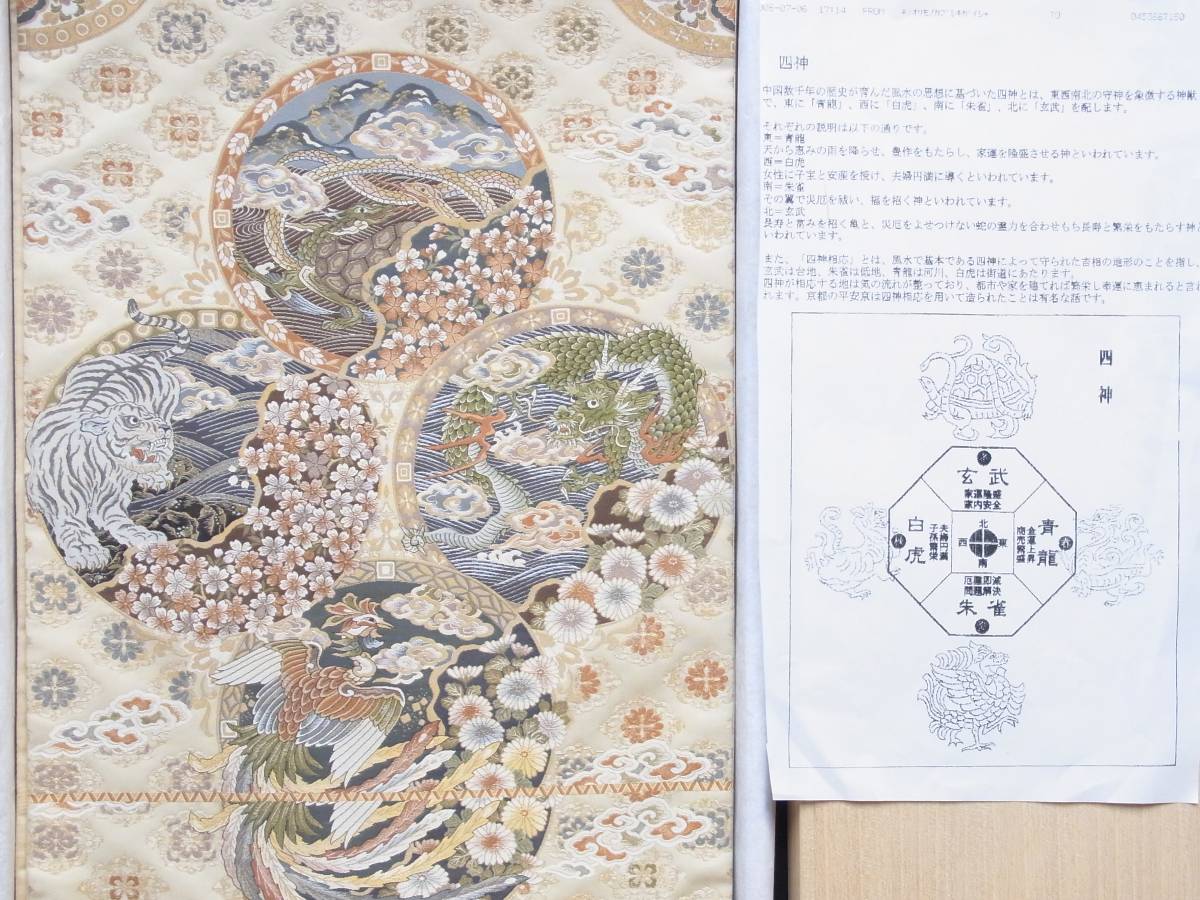 006-07-06 17:14 FROM
四神
中国数千年の歴史が育んだ風水の思想に基づいた四神とは、東西南北の守神を象徴する神獣
で、東に「青龍」、西に「白虎」、南に「朱雀」、北に「玄武」を配します。
それぞれの説明は以下の通りです。
東＝青龍
天から恵みの雨を降らせ、豊作をもたらし、家運を隆盛させる神といわれています。
西＝白虎
女性に子宝と安産を授け、夫婦円満に導くといわれています。
南＝朱雀
その翼で災厄を祓い、福を招く神といわれています。
北＝玄武
長寿と富みを招く亀と、災厄をよせつけない蛇の霊力を合わせもち長寿と繁栄をもたらす神と
いわれています。
また、「四神相応」とは、風水で基本である四神によって守られた吉相の地形のことを指し、
玄武は台地、朱雀は低地、青龍は河川、白虎は街道にあたります。
四神が相応する地は気の流れが整っており、都市や家を建てれば繁栄し幸運に恵まれると言わ
れます。京都の平安京は四神相応を用いて造られたことは有名な話です。
四神
玄武
家運隆盛
家内安全
白虎
夫婦円満
子孫繁栄
北
西
東
南
金運上昇
商売繁盛
青龍
厄難即滅
問題解決
朱雀